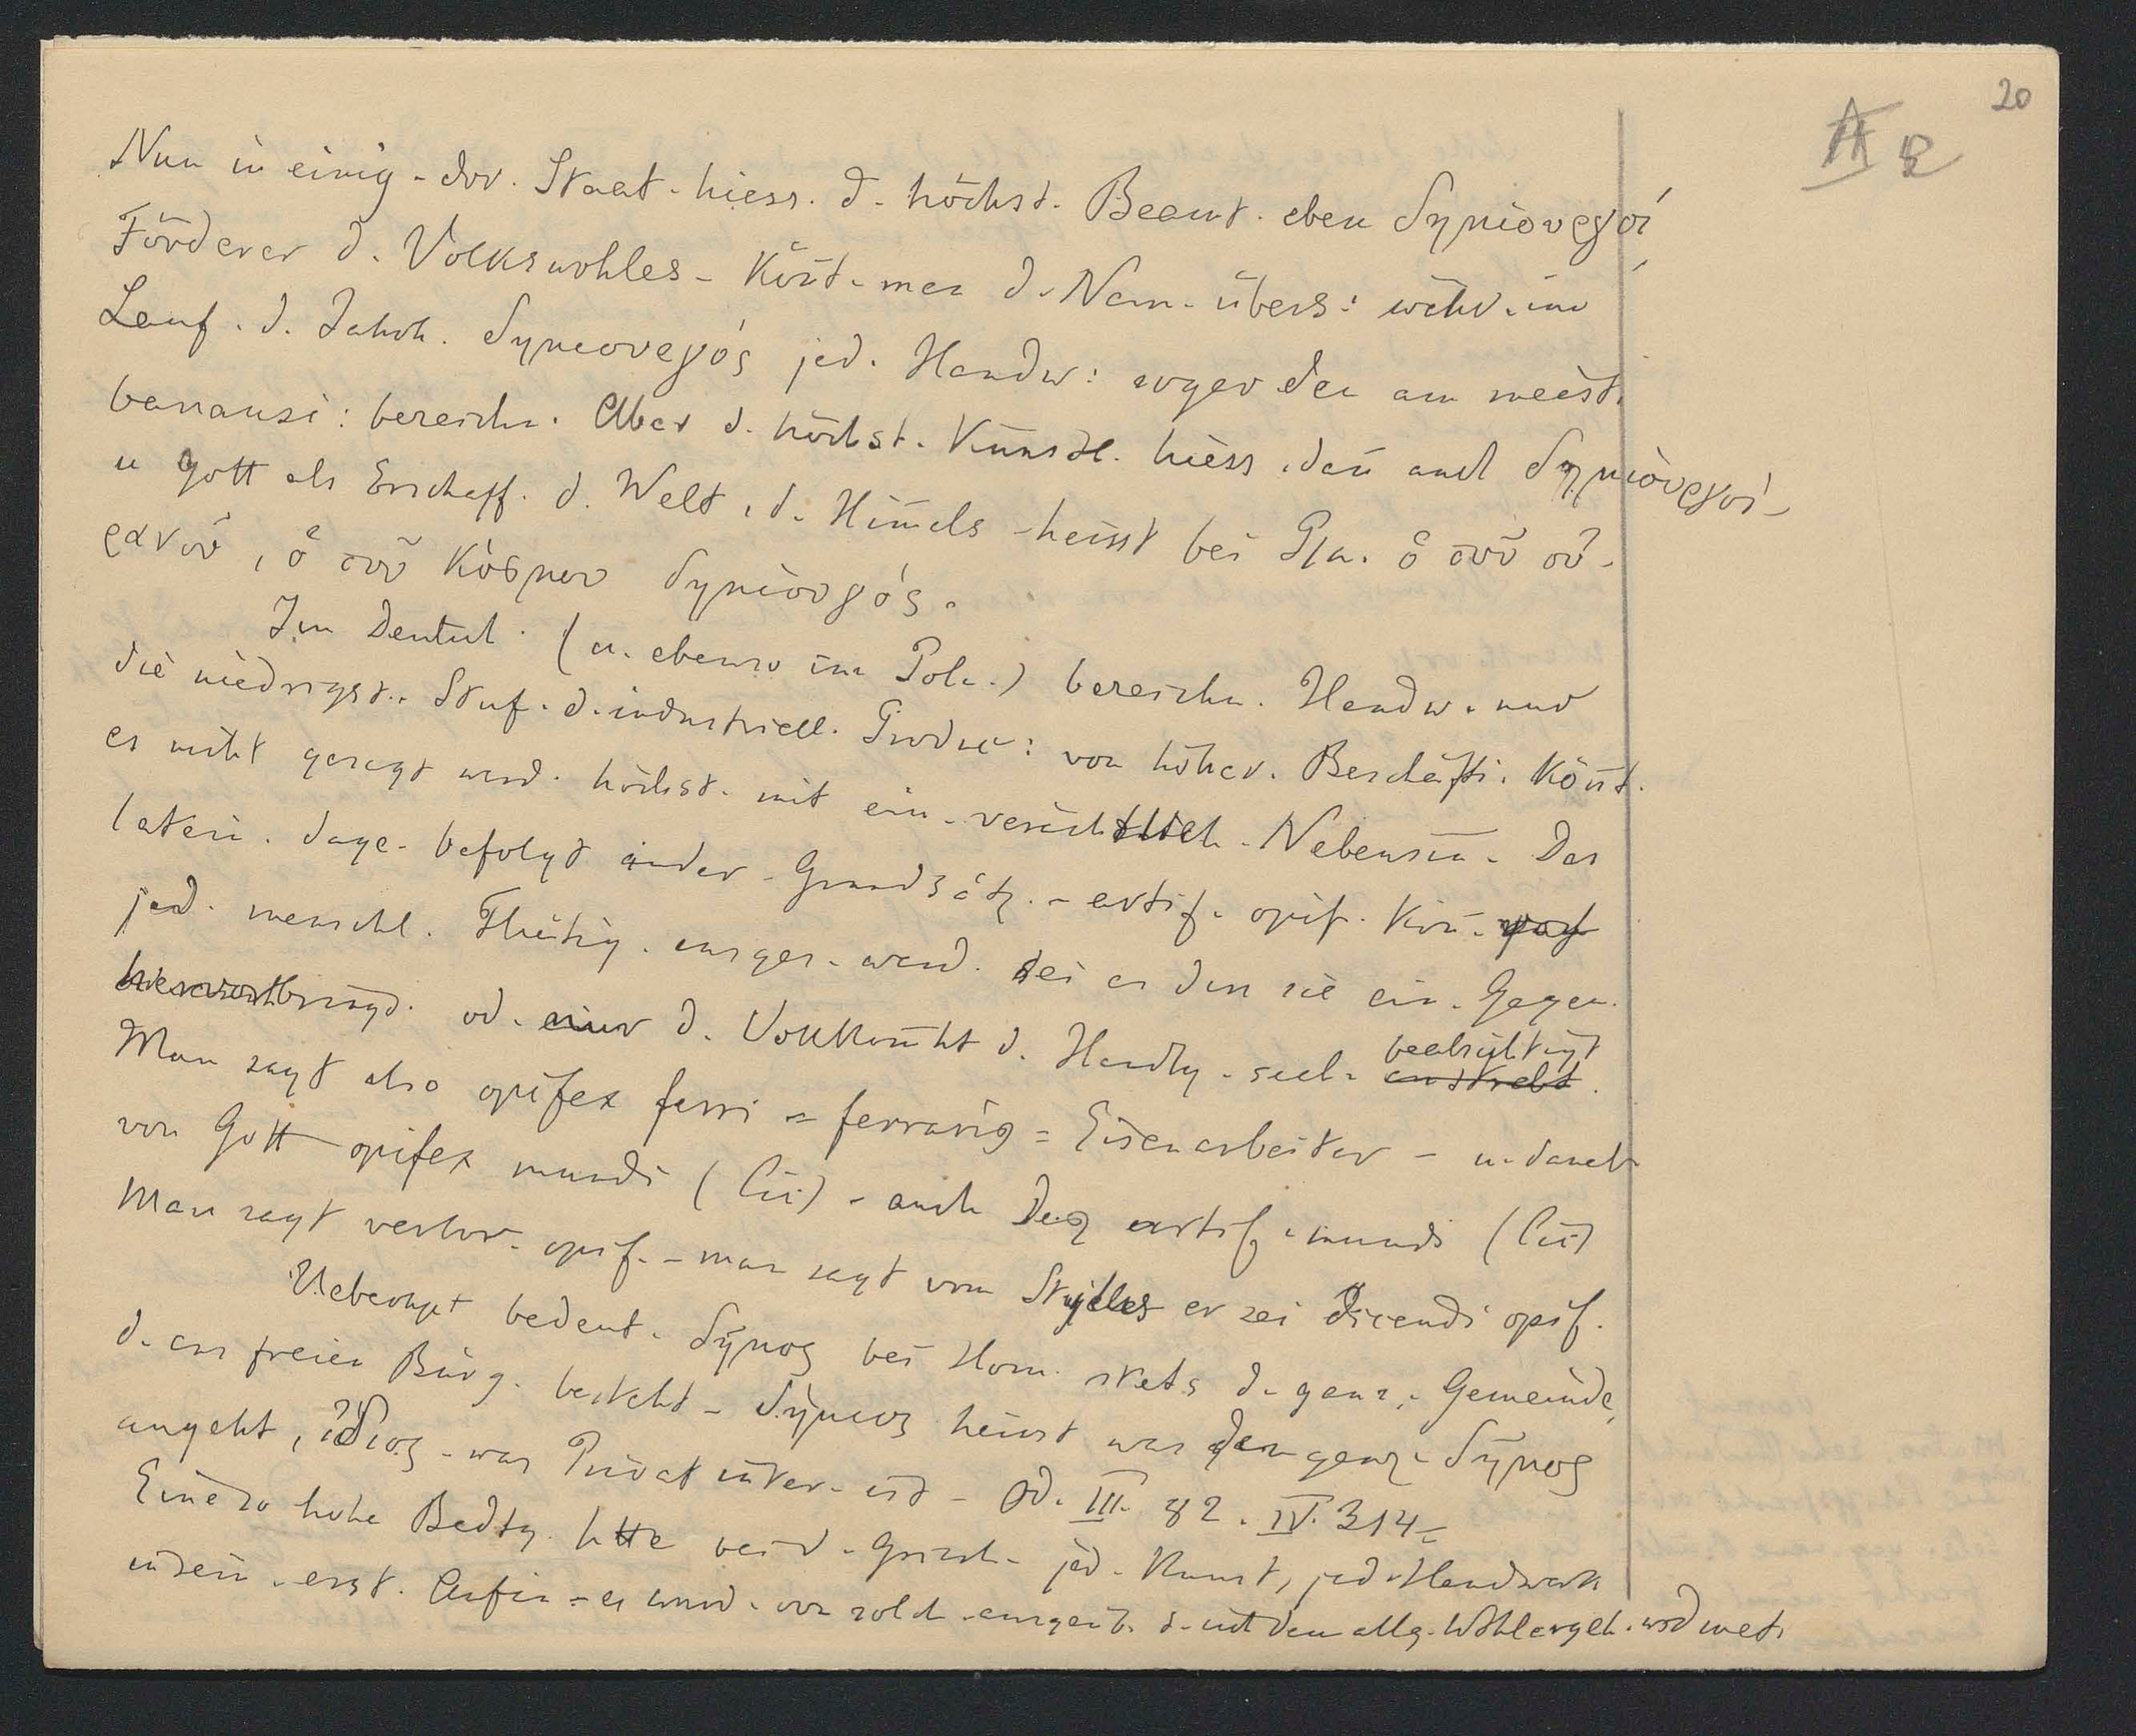 20
II
Nun in einig. dor. Staat. hiess. d. höchst. Beamt. eben δημιουργοί
Förderer d. Volkswohles – Könt. man d. Nam. übers: währ. im
Lauf. d. Jahrh. δημιουργός jed. Handw: sogar den am meist.
banausi: bezeichn. Aber d. höchst. Künstl. hiess. dañ auch δημιουργοί –
u Gott als Erschaff. d. Welt, d. Him̄els heisst bei Pla. ὁ τοῦ οὐ-
ρανοῦ, ὁ τοῦ κόσμου δημιουργός.
Im Deutsch. (u. ebenso im Poln.) bezeichn. Handw. nur
die niedrigst. Stuf. d. industriell. Produc: von höher. Beschäfti. Könt.
es nicht gesagt werd. höchst. mit ein. verächtlich. Nebensin̄. Das
latein. dage. befolgt ander. Grundsätz. – artif. opif. kön̄.
jed. menschl. Thätig. ausges. werd. sei es dass sie ein. Gegen.
hervorbringt. od. nur d. Vollkom̄ht d. Handlg. selb. anstrebt. beabsichtigt
Man sagt also opifex ferri = ferrarius = Eisenarbeiter – u. daneb.
von Gott opifex mundi (Cic) – auch Deus artif. mundi (Cic)
Man sagt verbor. opif. – man sagt vom er sei dicendi opif.
Ueberhpt bedeut. δῆμος bei Hom. stets d. ganz. Gemeinde,
d. aus freien Bürg. besteht – δήμιος heisst was den ganz. δῆμος
angeht, ἴδιος – was Privatinter. ist – Od. III. 82. IV. 314 –
Eine so hohe Bedtg. htte bei d. Griech. jed. Kunst, jed. Handwerk
in sein. erst. Anfän – es wurd. von solch. ausgeüb. d. sich dem allg. Wohlergeh. widmet.